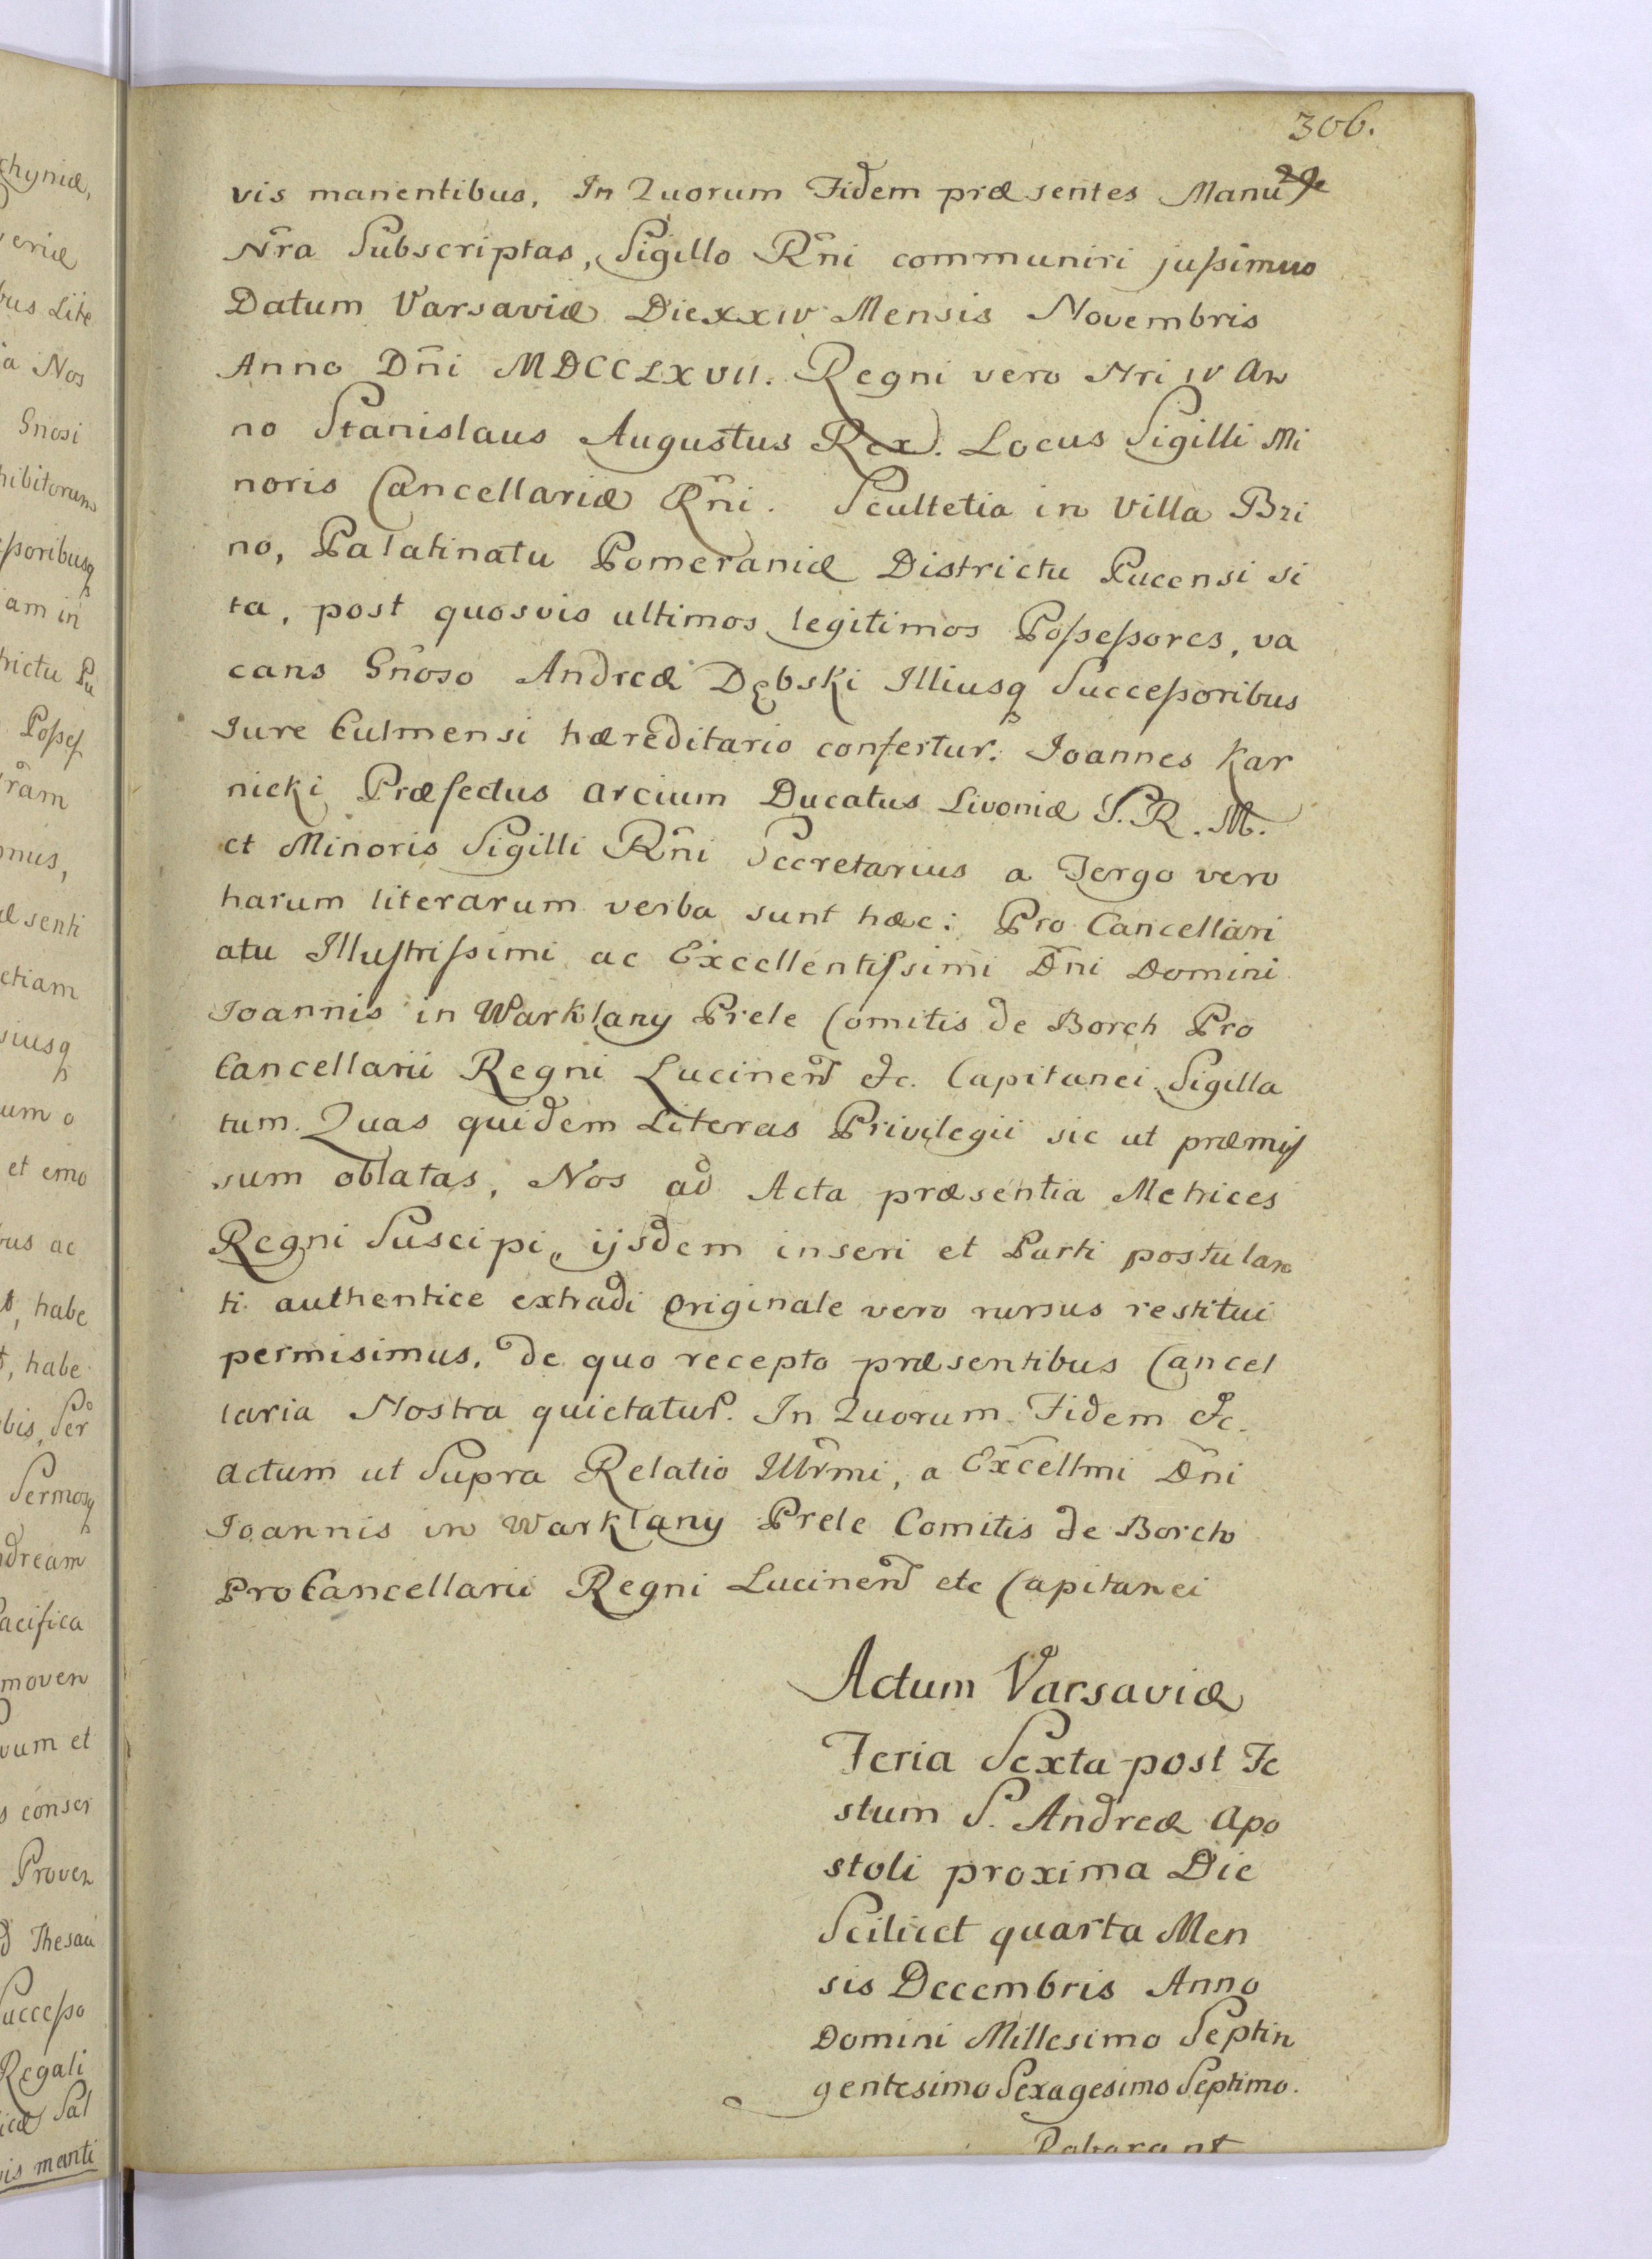 306.
vis manentibus, In Quorum Fidem præsentes Manu
Nr̃a Subscriptas, Sigillo Rñi communiri jussimus
Datum Varsaviæ Die XXIV Mensis Novembris
Anno Dñi MDCCLXVII. Regni vero Nri IV An
no Stanislaus Augustus Rex. Locus Sigilli Mi
noris Cancellariæ Rñi. Scultetia in Villa Bri
no, Palatinatu Pomeraniæ Districtu Pucensi si
ta, post quosvis ultimos legitimos Possessores, va
cans Gñoso Andreæ Dębski Illiusq Successoribus
Iure Culmensi hæreditario confertur. Joannes Kar
nicki Præfectus Arcium Ducatus Livoniæ S.R.M.
et Minoris Sigilli Rñi Secretarius a Tergo vero
harum literarum verba sunt hæc: Pro Cancellari
atu Illustrissimi ac Excellentissimi Dñi Domini
Joannis in Warklany Prele Comitis de Borch Pro
Cancellarii Regni Lucinen etc. Capitanei Sigilla
tum. Quas quidem Literas Privilegii sic ut præmis
sum oblatas, Nos ad Acta præsentia Metrices
Regni Suscipi, ijsdem inseri et Parti postulan
ti authentice extradi Originale vero rursus restitui
permisimus, de quo recepto præsentibus Cancel
laria Nostra quietatur. In Quorum Fidem etc.
Actum ut Supra Relatio Illr̃mi, a Exc̃ellmi Dñi
Joannis in Warklany Prele Comitis de Borch
ProCancellarii Regni Lucinen etc Capitanei
Actum Varsaviæ
Feria Sexta post Fe
stum S. Andreæ Apo
stoli proxima Die
Scilicet quarta Men
sis Decembris Anno
Domini Millesimo Septin
gentesimo Sexagesimo Septimo.